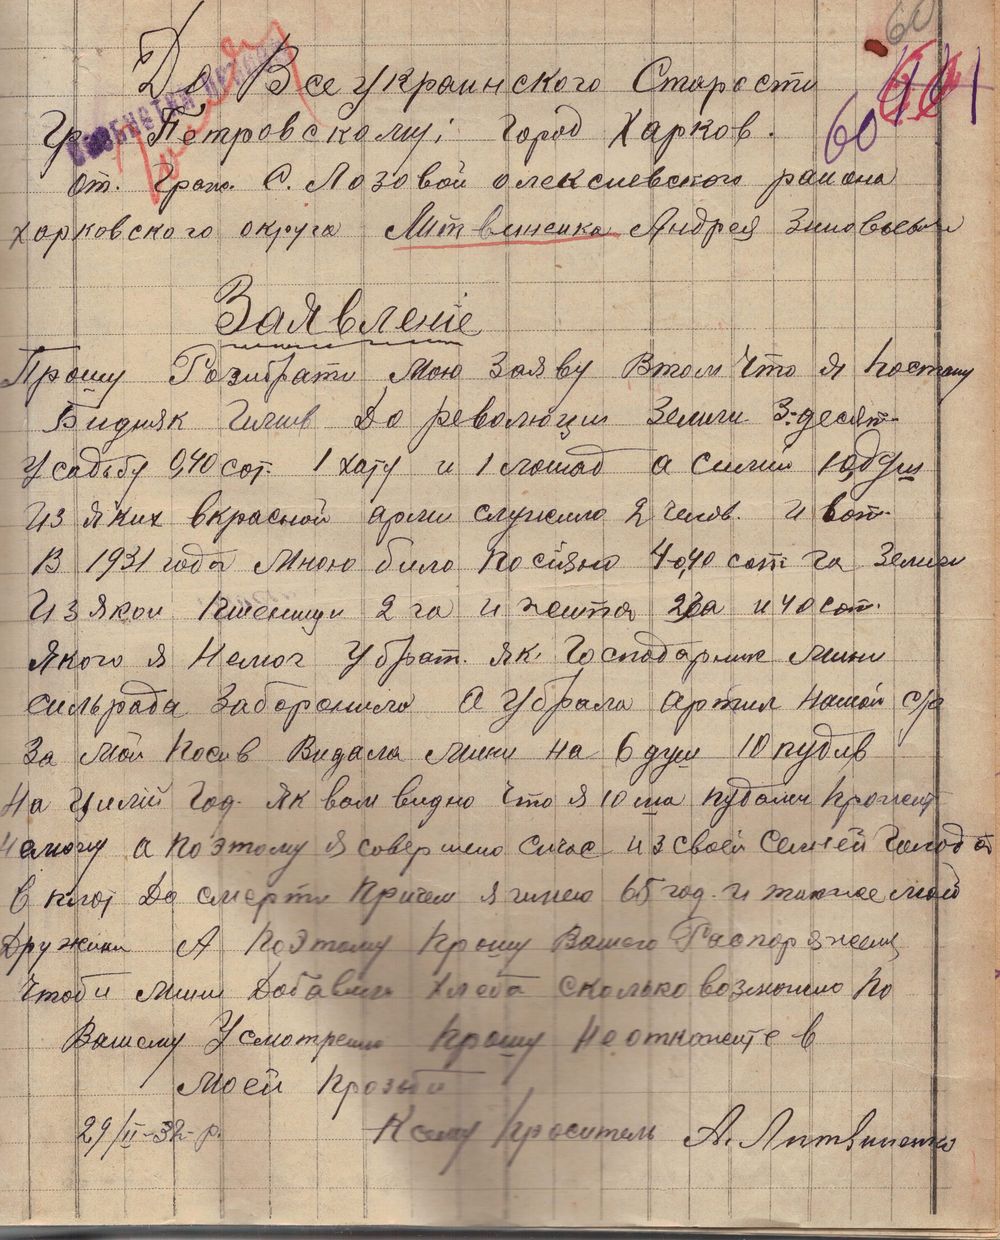 60
До Всеукраинского Старости
Гр. Петровскому; город Харков.
60
от. Граж. С. Лозовой олексиевского района
харковского округа Литвиненка Андрея Зиновьеви
Заявленіе
Прошу Розибрати мою заяву втом что я поспану
Бидняк имив до революции земли 3-десят-
усадьбу 0,40 сот. 1 хату и 1 лошад а симии 10 душ
из яких вкрасной арми служило 2 челов. и вот-
В 1931 года мною било посіяно 4-0,40 сот га земли
из якои пшеници 2 га и жита 2га и 40 сот.
якого я немог убрат. як Господарник мини
сильрада заборонила а убрала артил нашои с/р
За мой посив Видала мини на 6 душ 10 пудив
на цилий год. як вам видно что я 10 ма пудами прожит
немогу а поэтому я совершено сичас из своей семией голод а
в плот до смерти причем я имею 65 год. и также мой
Дружини А поэтому прошу вашего Распоряжения,
чтоби мини добавили хлеба сколько возможно по
Вашему усмотрению прошу неоткажите в
моей прозьби
29/II-32-р. Ксему проситель А. Литвиненко